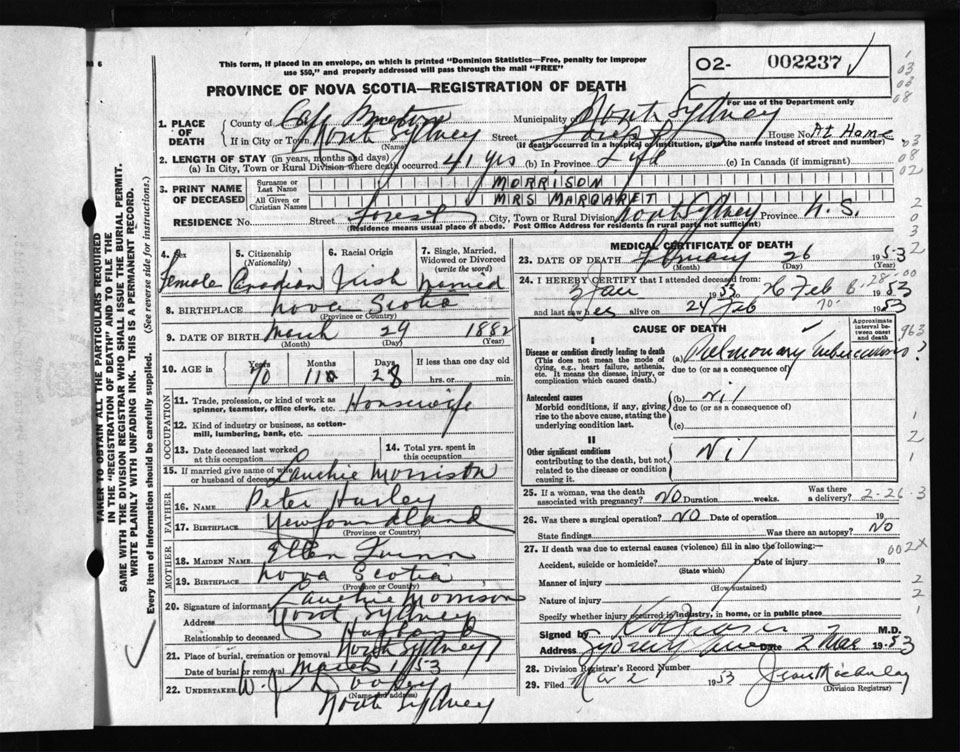 This form, if placed in an envelope, on which is printed "Dominion Statistics—Free, penalty for improper
use $50," and properly addressed will pass through the mail "FREE"
O2- 002237
For use of the Department only
PROVINCE OF NOVA SCOTIA—REGISTRATION OF DEATH
1. PLACE OF DEATH
County of Cape Breton Municipality of North Sydney
If in City or Town North Sydney (Name) Street Forest House No. At Home
(If death occurred in a hospital or institution, give the name instead of street and number)
2. LENGTH OF STAY (in years, months and days)
(a) In City, Town or Rural Division where death occurred 41 yrs (b) In Province Life (c) In Canada (if immigrant)
3. PRINT NAME OF DECEASED
Surname or Last Name MORRISON
All Given or Christian Names MRS MARGARET
RESIDENCE No. Street Forest City, Town or Rural Division North Sydney Province N.S.
(Residence means usual place of abode. Post Office Address for residents in rural parts not sufficient)
4. Sex Female
5. Citizenship (Nationality) Canadian
6. Racial Origin Irish
7. Single, Married, Widowed or Divorced (write the word) Married
8. BIRTHPLACE Nova Scotia
(Province or Country)
9. DATE OF BIRTH March 29 1882
(Month) (Day) (Year)
10. AGE in Years 70 Months 11 Days 28 If less than one day old hrs. or min.
OCCUPATION
11. Trade, profession, or kind of work as spinner, teamster, office clerk, etc. Housewife
12. Kind of industry or business, as cotton-mill, lumbering, bank, etc.
13. Date deceased last worked at this occupation
14. Total yrs. spent in this occupation
15. If married give name of wife or husband of deceased Lauchie Morrison
FATHER
16. Name Peter Hurley
17. Birthplace Newfoundland
(Province or Country)
MOTHER
18. MAIDEN NAME Ellen Quinn
19. BIRTHPLACE Nova Scotia
(Province or Country)
20. Signature of informant Lauchie Morrison
Address North Sydney
Relationship to deceased Husband
21. Place of burial, cremation or removal North Sydney
Date of burial or removal March 1/53
22. UNDERTAKER W. J. Dooley
(Name and address)
North Sydney
MEDICAL CERTIFICATE OF DEATH
23. DATE OF DEATH February 26 1953
(Month) (Day) (Year)
24. I HEREBY CERTIFY that I attended deceased from:
3 Jan 1953 to 26 Feb 1953
and last saw her alive on 24 Feb 1953
CAUSE OF DEATH
Approximate interval between onset and death
I
Disease or condition directly leading to death
(This does not mean the mode of dying, e.g., heart failure, asthenia, etc. It means the disease, injury, or complication which caused death.)
(a) Pulmonary Tuberculosis ?
due to (or as a consequence of)
Antecedent causes
Morbid conditions, if any, giving rise to the above cause, stating the underlying condition last.
(b) Nil
due to (or as a consequence of)
(c)
II
Other significant conditions
contributing to the death, but not related to the disease or condition causing it.
Nil
25. If a woman, was the death associated with pregnancy? NO Duration weeks. Was there a delivery? 2-26-3
26. Was there a surgical operation? NO Date of operation 19
State findings Was there an autopsy? NO
27. If death was due to external causes (violence) fill in also the following:—
Accident, suicide or homicide? Date of injury 19
(State which)
Manner of injury
(How sustained)
Nature of injury
Specify whether injury occurred in industry, in home, or in public place
Signed by M.D.
Address Date 2 Mar 1953
28. Division Registrar's Record Number
29. Filed Mar 2 1953
(Division Registrar)
TAKEN TO OBTAIN ALL THE PARTICULARS REQUIRED
IN THE "REGISTRATION OF DEATH" AND TO FILE THE
SAME WITH THE DIVISION REGISTRAR WHO SHALL ISSUE THE BURIAL PERMIT.
WRITE PLAINLY WITH UNFADING INK. THIS IS A PERMANENT RECORD.
Every item of information should be carefully supplied. (See reverse side for instructions.)